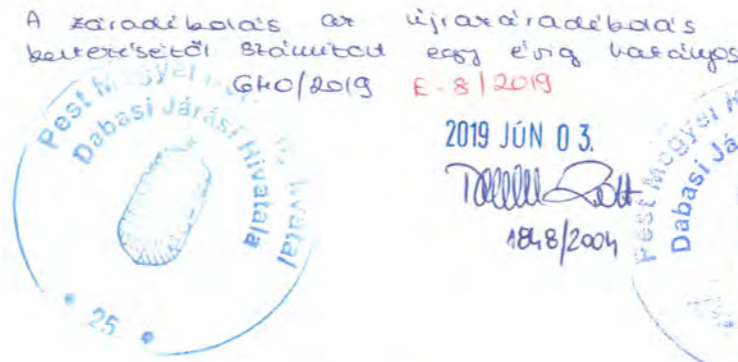 A záradékolás az újrazáradékolás
keltezésétől számított egy évig hatályos
640/2019 E-8/2019
Pest Megyei Hivatal
Dabasi Járási Hivatala
25
2019 JÚN 03.
1848/2004
Pest Megyei
Dabasi Já